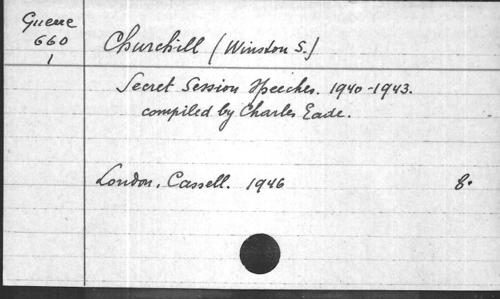 Guerre
660
1
Churchill (Winston S.)
Secret Session Speeches. 1940-1943.
compiled by Charles Eade.
London, Cassell. 1946 8°